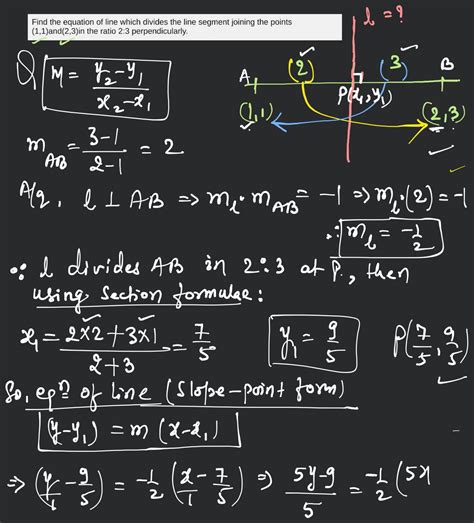 Find the equation of line which divides the line segment joining the points
(1,1)and(2,3)in the ratio 2:3 perpendicularly.
l = ?
Q
M = (y₂-y₁)/(x₂-x₁)
A (2) (3) B
P(x₁,y₁)
(1,1) (2,3)
m_AB = (3-1)/(2-1) = 2
A/q, l ⊥ AB ⇒ m_l · m_AB = -1 ⇒ m_l·(2) = -1
∴ m_l = -1/2
∵ l divides AB in 2:3 at P., then
using section formulae:
x₁ = (2×2+3×1)/(2+3) = 7/5 y₁ = 9/5 P(7/5, 9/5)
So, eqⁿ of line (slope-point form)
(y-y₁) = m(x-x₁)
⇒ (y/1 - 9/5) = -1/2 (x/1 - 7/5) ⇒ (5y-9)/5 = -1/2 (5x